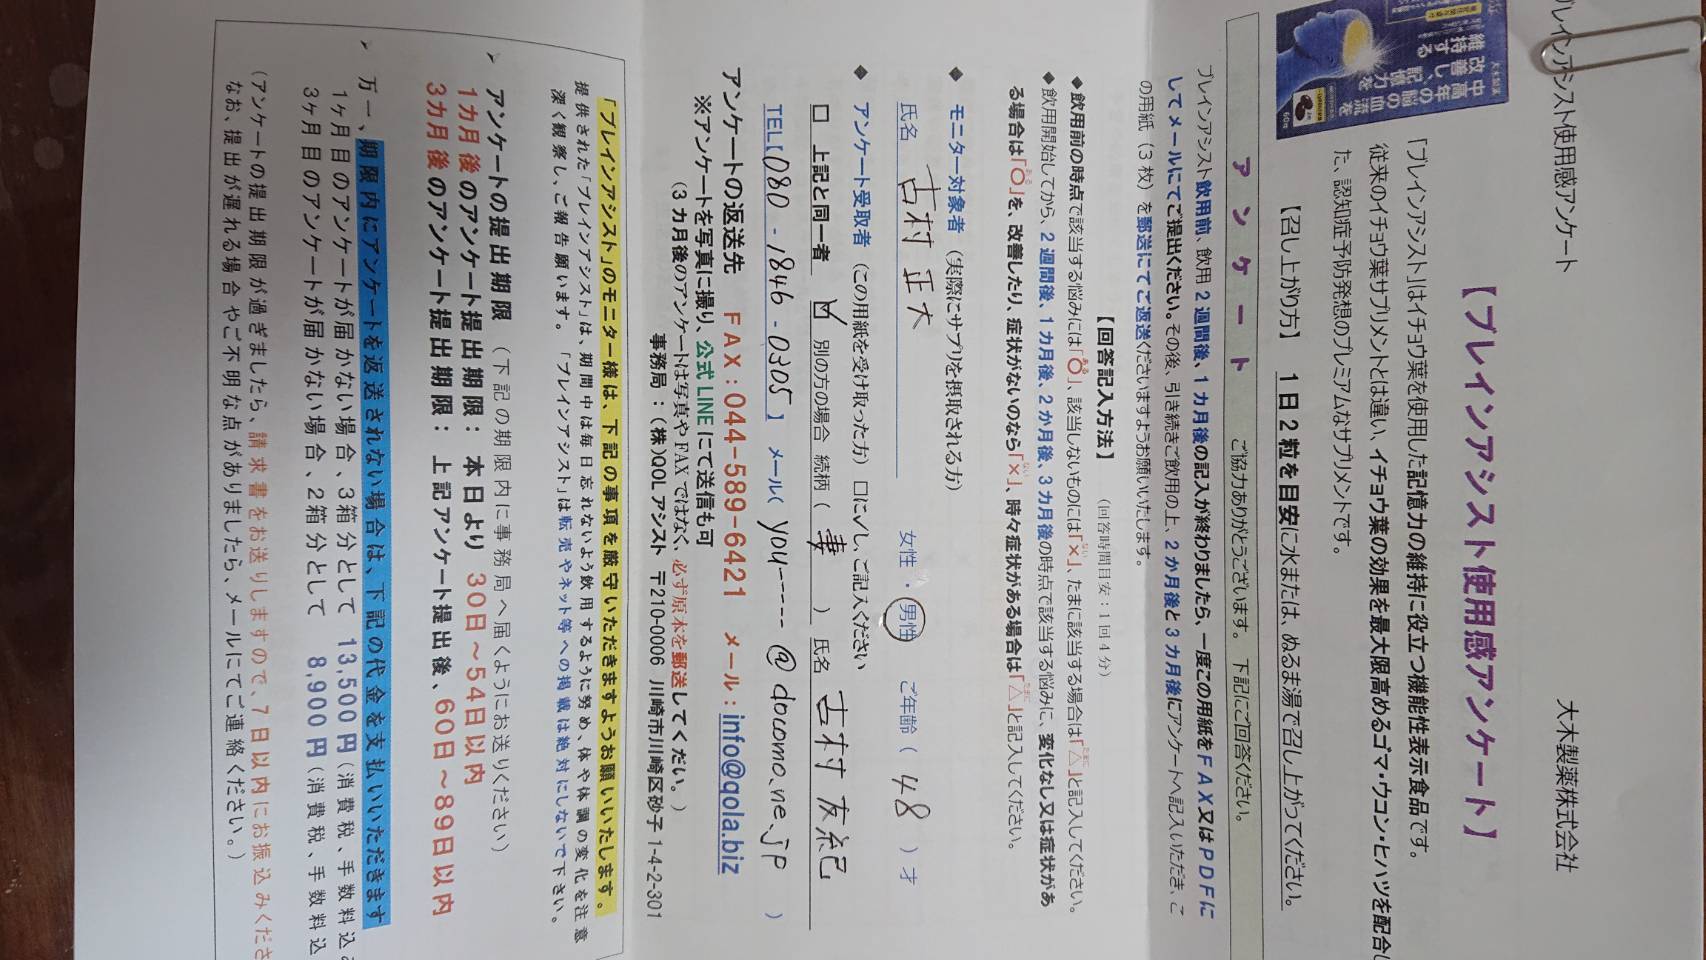 ブレインアシスト使用感アンケート
大木製薬株式会社
【ブレインアシスト使用感アンケート】
大木製薬
中高年の脳の血流を
改善し、記憶力を
維持する
60粒
「ブレインアシスト」はイチョウ葉を使用した記憶力の維持に役立つ機能性表示食品です。
従来のイチョウ葉サプリメントとは違い、イチョウ葉の効果を最大限高めるゴマ・ウコン・ヒハツを配合し
た、認知症予防発想のプレミアムなサプリメントです。
【召し上がり方】 1日2粒を目安に水または、ぬるま湯で召し上がってください。
アンケート ご協力ありがとうございます。下記にご回答ください。
ブレインアシスト飲用前、飲用2週間後、1カ月後の記入が終わりましたら、一度この用紙をFAX又はPDFに
してメールにてご提出ください。その後、引き続きご飲用の上、2か月後と3カ月後にアンケートへ記入いただき、こ
の用紙（3枚）を郵送にてご返送くださいますようお願いいたします。
【回答記入方法】 （回答時間目安：1回4分）
◆飲用前の時点で該当する悩みには「〇」、該当しないものには「×」、たまに該当する場合は「△」と記入してください。
◆飲用開始してから、2週間後、1カ月後、2か月後、3カ月後の時点で該当する悩みに、変化なし又は症状があ
る場合は「〇」を、改善したり、症状がないのなら「×」、時々症状がある場合は「△」と記入してください。
◆ モニター対象者（実際にサプリを摂取される方）
氏名 古村 正大 女性 ・ 男性 ご年齢（ 48 ）才
◆ アンケート受取者（この用紙を受け取った方）□に✓し、ご記入ください
□ 上記と同一者 ☑ 別の方の場合 続柄（ 妻 ）氏名 古村 友紀
TEL【080-1846-0305】 メール（ you----- @docomo.ne.jp ）
アンケートの返送先 FAX：044-589-6421 メール：info@qola.biz
※アンケートを写真に撮り、公式LINEにて送信も可
（3カ月後のアンケートは写真やFAXではなく、必ず原本を郵送してくだい。）
事務局：（株）QOLアシスト 〒210-0006 川崎市川崎区砂子1-4-2-301
「ブレインアシスト」のモニター様は、下記の事項を厳守いただきますようお願いいたします。
提供された「ブレインアシスト」は、期間中は毎日忘れないよう飲用するように努め、体や体調の変化を注意
深く観察し、ご報告願います。「ブレインアシスト」は転売やネット等への掲載は絶対にしないで下さい。
➤ アンケートの提出期限（下記の期限内に事務局へ届くようにお送りください）
1カ月後のアンケート提出期限： 本日より 30日～54日以内
3カ月後のアンケート提出期限： 上記アンケート提出後、60日～89日以内
➤ 万一、期限内にアンケートを返送されない場合は、下記の代金を支払いいただきます
1ヶ月目のアンケートが届かない場合、3箱分として 13,500円（消費税、手数料込
3ヶ月目のアンケートが届かない場合、2箱分として 8,900円（消費税、手数料込
（アンケートの提出期限が過ぎましたら、請求書をお送りしますので、7日以内にお振込みくださ
なお、提出が遅れる場合やご不明な点がありましたら、メールにてご連絡ください。）